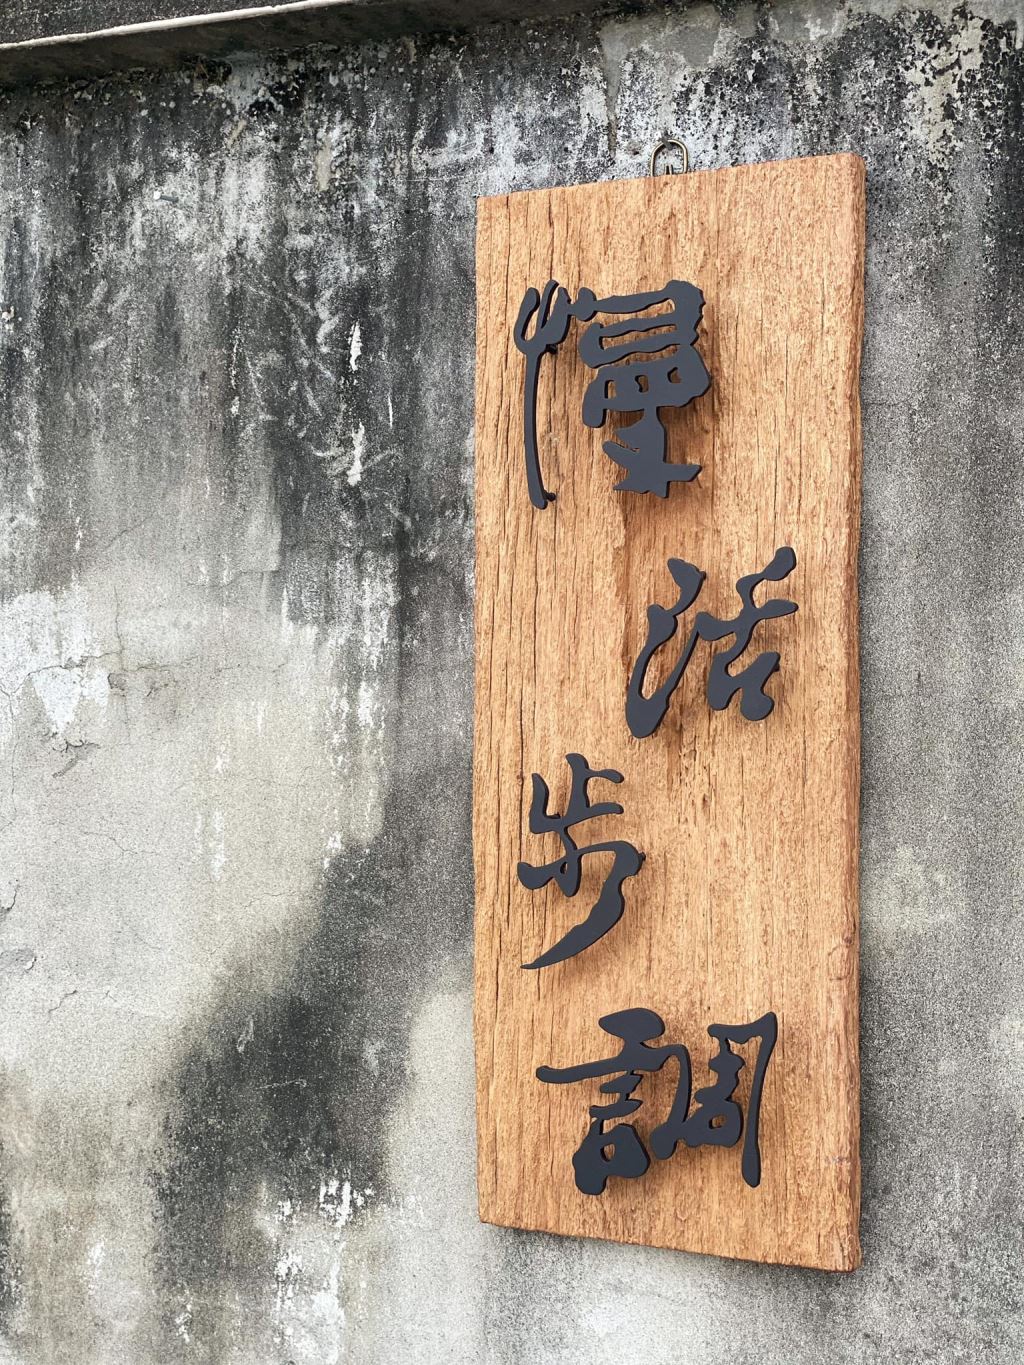 慢活步調